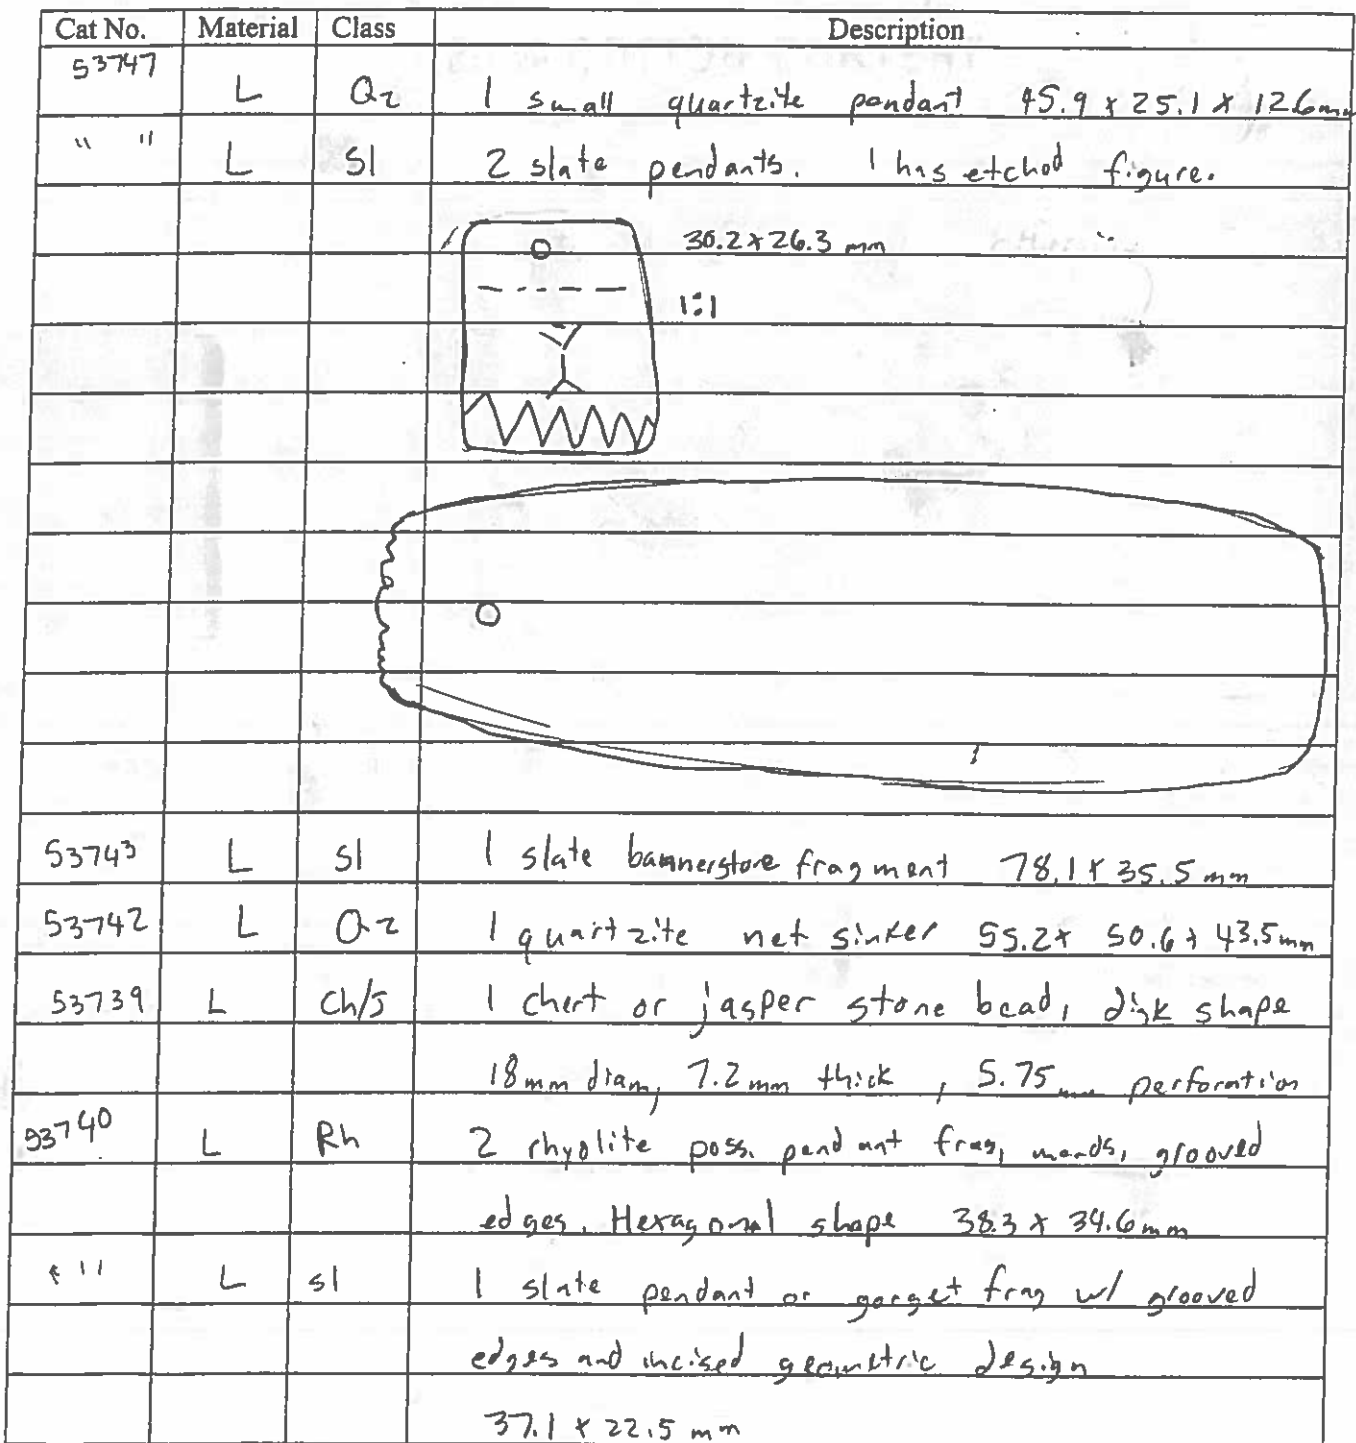 Cat No. Material Class Description
53747 L Qz 1 small quartzite pendant 45.9 x 25.1 x 12.6mm
" " L Sl 2 slate pendants. 1 has etched figure.
30.2 x 26.3 mm
1:1
53743 L Sl 1 slate bannerstone fragment 78.1 x 35.5 mm
53742 L Qz 1 quartzite net sinker 55.2 x 50.6 x 43.5mm
53739 L Ch/J 1 chert or jasper stone bead, disk shape
18mm diam, 7.2mm thick, 5.75mm perforation
53740 L Rh 2 rhyolite poss. pendant frag, mends, grooved
edges. Hexagonal shape 38.3 x 34.6mm
" " L sl 1 slate pendant or gorget frag w/ grooved
edges and incised geometric design
37.1 x 22.5 mm